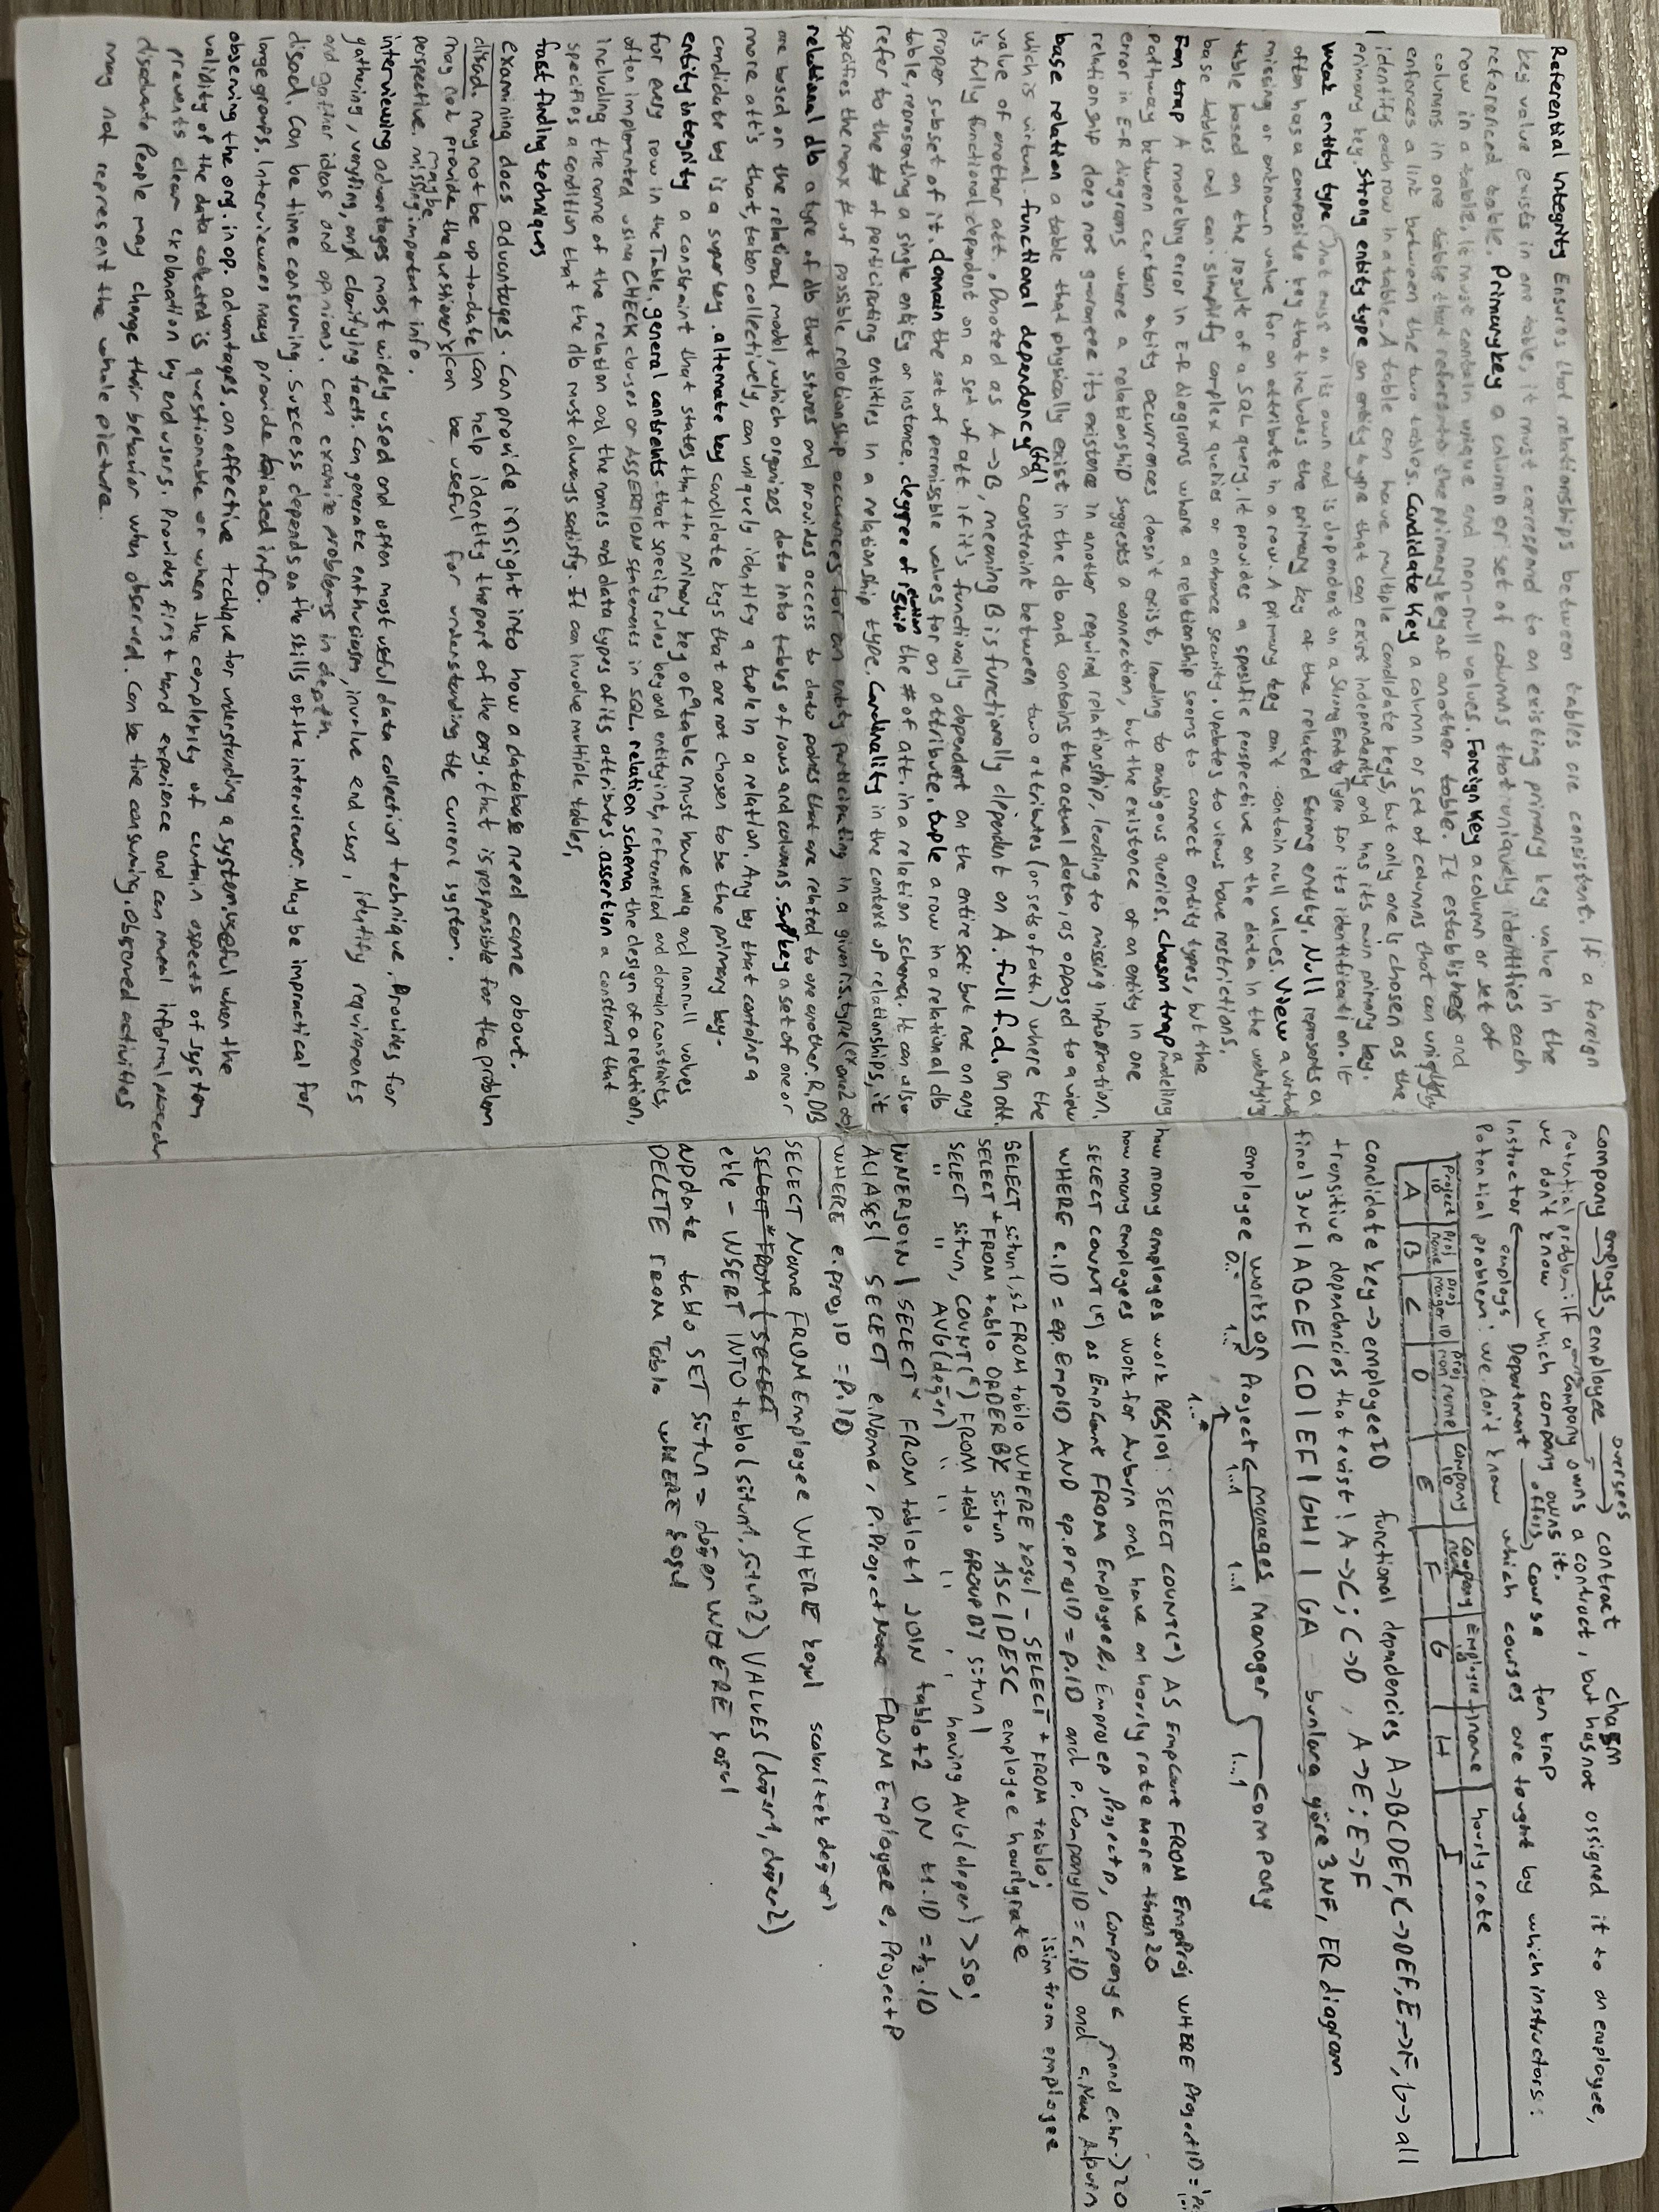 Referential Integrity Ensures that relationships between tables are consistent. If a foreign
key value exists in one table, it must correspond to an existing primary key value in the
referenced table. Primary key a column or set of columns that uniquely identifies each
row in a table. It must contain unique and non-null values. Foreign Key a column or set of
columns in one table that refers to the primary key of another table. It establishes and
enforces a link between the two tables. Candidate Key a column or set of columns that can
identify each row in a table. A table can have multiple candidate keys, but only one is chosen as the
primary key. Strong entity type an entity type that can exist independently and has its own primary key.
Weak entity type not exist on its own and is dependent on a Strong Entity Type for its identification. It
often has a composite key that includes the primary key of the related Strong entity. Null represents a
missing or unknown value for an attribute in a row. A primary key can't contain null values. View a virtual
table based on the result of a SQL query. It provides a spesific perspective on the data in the underlying
base tables and can simplify complex queries or enhance security. Updates to views have restrictions.
Fan trap A modeling error in E-R diagrams where a relationship seems to connect entity types, but the
Pathway between certain entity occurrences doesn't exist, leading to ambigous queries. Chasm trap a modeling
error in E-R diagrams where a relationship suggests a connection, but the existence of an entity in one
relationship does not guarantee its existence in another required relationship, leading to missing information.
base relation a table that physically exist in the db and contains the actual data, as opposed to a view
wich is virtual. functional dependency (fd) a constraint between two attributes (or sets of att.) where the
value of another att.. Denoted as A→B, meaning B is functionally dependent on A. full f.d. an att.
is fully functional dependent on a set of att. if it's functionally dependent on the entire set but not on any
proper subset of it. domain the set of permissble values for an attribute. tuple a row in a relational db
table, representing a single entity or instance. deggree of relation ship the # of att. in a relation schema. It can also
refer to the # of participating entitles in a relationship type. Cardinality in the context of relationships, it
specifies the max # of possible relationship occurences for an entity participating in a given r.s. type (ex one2
relational db a type of db that stores and provides access to data points that are related to one another. R.DB
are based on the relational model, which organizes data into tables of rows and columns. key a set of one or
more att's that, taken collectively, can uniquely identify a tuple in a relation. Any key that contains a
candidate key is a superkey. alternate key candidate keys that are not chosen to be the primary key.
entity integrity a constraint that states that the primary key of a table must have uniq and nonnull values
for every row in the Table. general that specify rules beyond entity int, referential and domain constraints,
often implemented using CHECK clauses or ASSERTION Statements in SQL. relation schema the design of a relation,
including the name of the relation and the names and data types of its attributes. assertion a constraint that
specifies a condition that the db must always satisfy. It can involve multiple tables,
fact finding techniques
examining docs advantages. Can provide insight into how a database need came about.
disad. may not be up-to-date | can help identity the part of the org. that is responsible for the problem
may not provide the questioner's | can be useful for understanding the current system.
perspective. maybe missing important info.
interviewing advantages most widely used and often most useful data collection technique. Provides for
gathering, and clarifying facts. Can generate enthusiasm, involve end users, identify requirements
and gather ideas and opinions. Can examine problems in depth.
disad. Can be time consuming. Success depends on the skills of the interviewer. May be impractical for
large groups. Interviewees may provide biased info.
observing the org. in op. advantages. an effective techique for understanding a system. useful when the
validity of the data collected is questionable or when the complexity of certain aspects of system
prevents clear explanation by end users. Provides first hand experience and can reveal informal
People may change their behavior when observed. Can be time consuming. Observed activities
may not represent the whole picture.
company employs → employee oversees → contract chasm
Potential problem: If a company owns a contract, but has not assigned it to an employee,
we don't know which company owns it.
Instructor ← employs Department offers → course fan trap
Potential problem: we don't know which courses are tought by which instructors.
Project ID | Proj name | Proj manger ID | Proj man name | Company ID | Company name | Employee ID | name | hourly rate
A | B | C | D | E | F | G | H | I
candidate key → employee ID functional dependencies A→BCDEF, C→DEF, E→F, G→all
transitive dependencies that exist! A→C; C→D, A→E; E→F
final 3NF | ABCE | CD | EF | GHI | GA bunlara göre 3NF, ER diagram
employee works on Project ← manages Manager company
0..* 1..* 1...1 1...1 1...1
1..*
how many employes work PGS101: SELECT COUNT(*) AS EmpCount FROM EmpProj WHERE ProjectID =
how many employees work for Auburn and have an hourly rate more than 20
SELECT COUNT (*) as EmpCount FROM Employee e, ep, Project p, Company c and e.hr > 20
WHERE e.ID = ep.EmpID AND ep.projID = p.ID and p.CompanyID = c.ID and c.Name Auburn
SELECT sütun1, s2 FROM tablo WHERE koşul - SELECT * FROM tablo; isim from employee
SELECT * FROM tablo ORDER BY sütun ASC|DESC employee hourlyrate
SELECT sütun, COUNT(*) FROM tablo GROUP BY sütun |
" " AVG(değer) " " " " having AVG(değer) > 50;
INNER JOIN | SELECT * FROM tablo t1 JOIN tablo t2 ON t1.ID = t2.ID
ALIASES | SELECT e.Name, p.Project Name FROM Employee e, Project P
WHERE e.proj ID = P.ID
SELECT Name FROM Employee WHERE koşul scalar(tek değer)
SELECT * FROM (SELECT
ekle - INSERT INTO tablo (sütun1, sütun2) VALUES (değer1, değer2)
update tablo SET sütun = değer WHERE koşul
DELETE FROM Tablo WHERE koşul